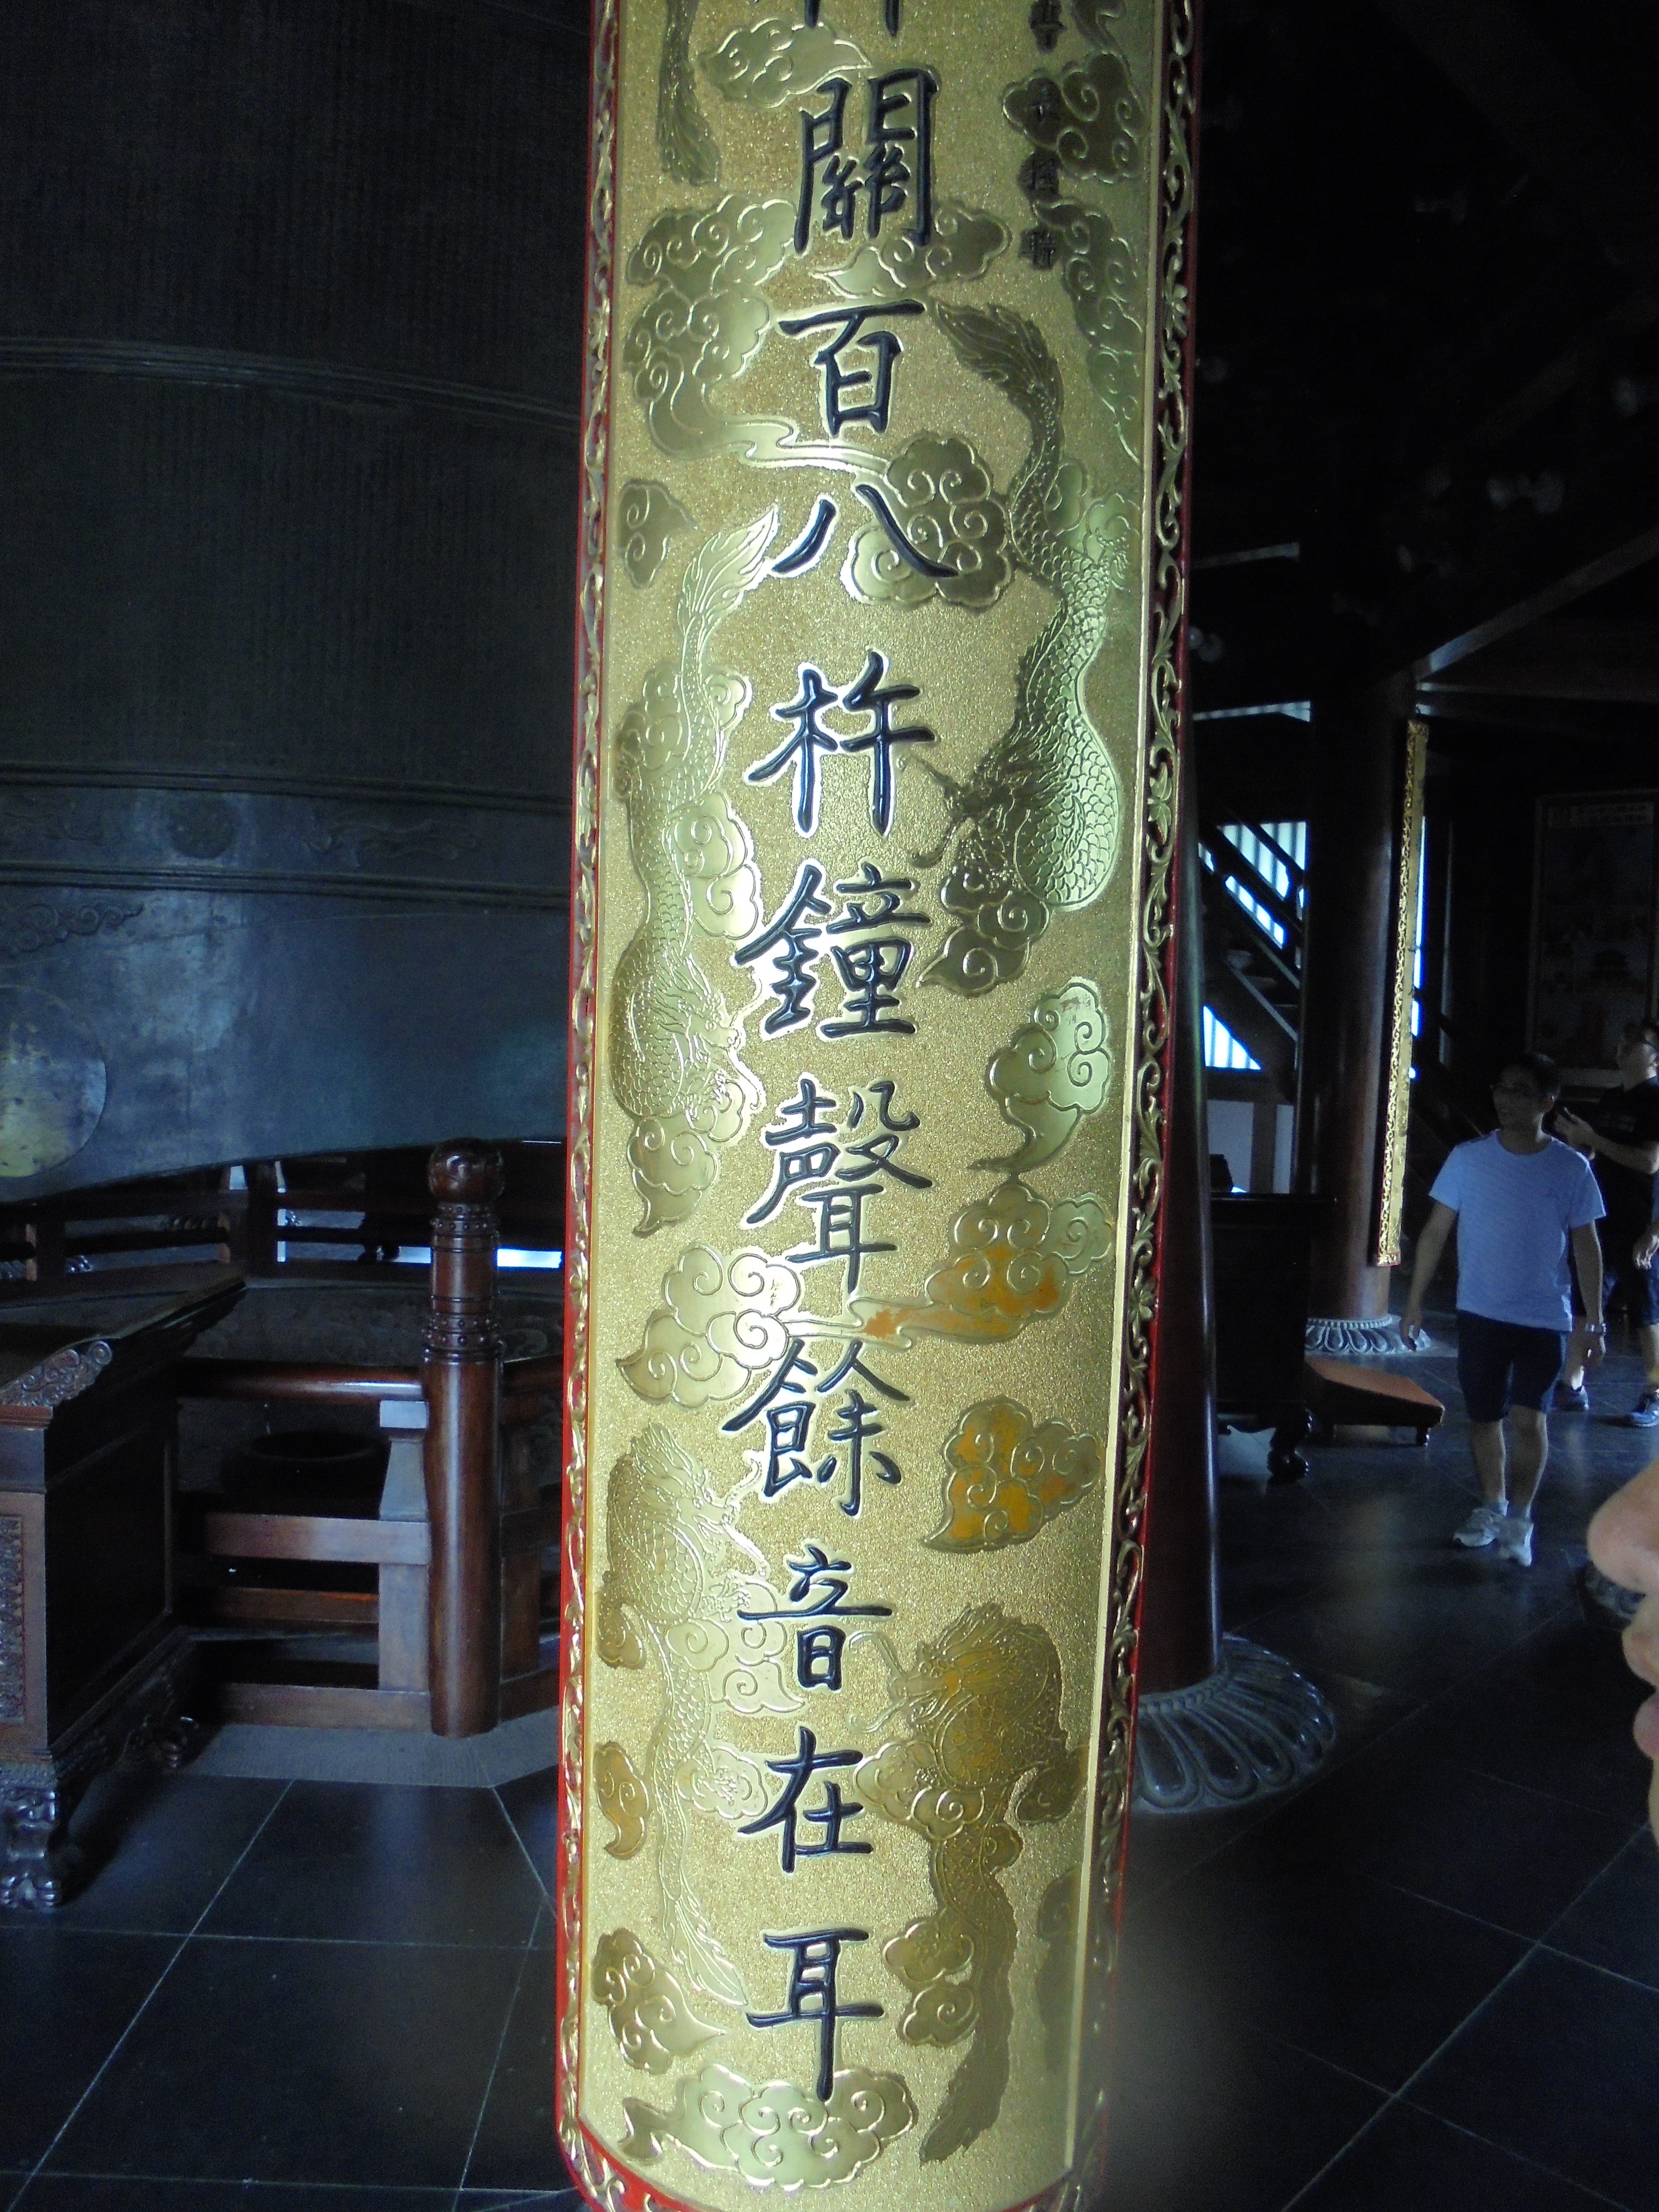 關百八杵鐘聲餘音在耳